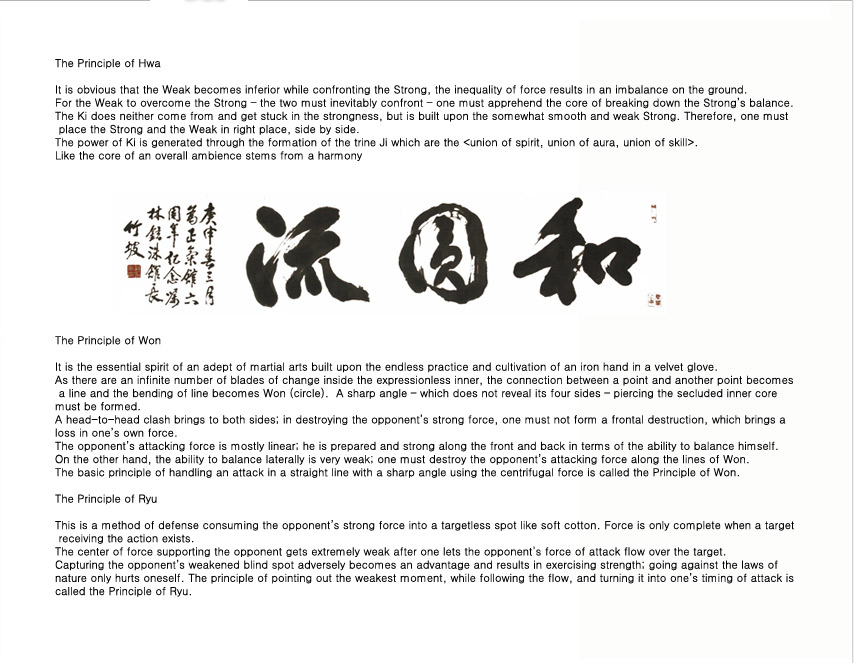 The Principle of Hwa
It is obvious that the Weak becomes inferior while confronting the Strong, the inequality of force results in an imbalance on the ground.
For the Weak to overcome the Strong – the two must inevitably confront – one must apprehend the core of breaking down the Strong's balance.
The Ki does neither come from and get stuck in the strongness, but is built upon the somewhat smooth and weak Strong. Therefore, one must
place the Strong and the Weak in right place, side by side.
The power of Ki is generated through the formation of the trine Ji which are the <union of spirit, union of aura, union of skill>.
Like the core of an overall ambience stems from a harmony
和圓流
庚申春三月
正氣館六
周年紀念
林鉉洙館長
竹坡
The Principle of Won
It is the essential spirit of an adept of martial arts built upon the endless practice and cultivation of an iron hand in a velvet glove.
As there are an infinite number of blades of change inside the expressionless inner, the connection between a point and another point becomes
a line and the bending of line becomes Won (circle). A sharp angle – which does not reveal its four sides – piercing the secluded inner core
must be formed.
A head-to-head clash brings to both sides; in destroying the opponent's strong force, one must not form a frontal destruction, which brings a
loss in one's own force.
The opponent's attacking force is mostly linear; he is prepared and strong along the front and back in terms of the ability to balance himself.
On the other hand, the ability to balance laterally is very weak; one must destroy the opponent's attacking force along the lines of Won.
The basic principle of handling an attack in a straight line with a sharp angle using the centrifugal force is called the Principle of Won.
The Principle of Ryu
This is a method of defense consuming the opponent's strong force into a targetless spot like soft cotton. Force is only complete when a target
receiving the action exists.
The center of force supporting the opponent gets extremely weak after one lets the opponent's force of attack flow over the target.
Capturing the opponent's weakened blind spot adversely becomes an advantage and results in exercising strength; going against the laws of
nature only hurts oneself. The principle of pointing out the weakest moment, while following the flow, and turning it into one's timing of attack is
called the Principle of Ryu.